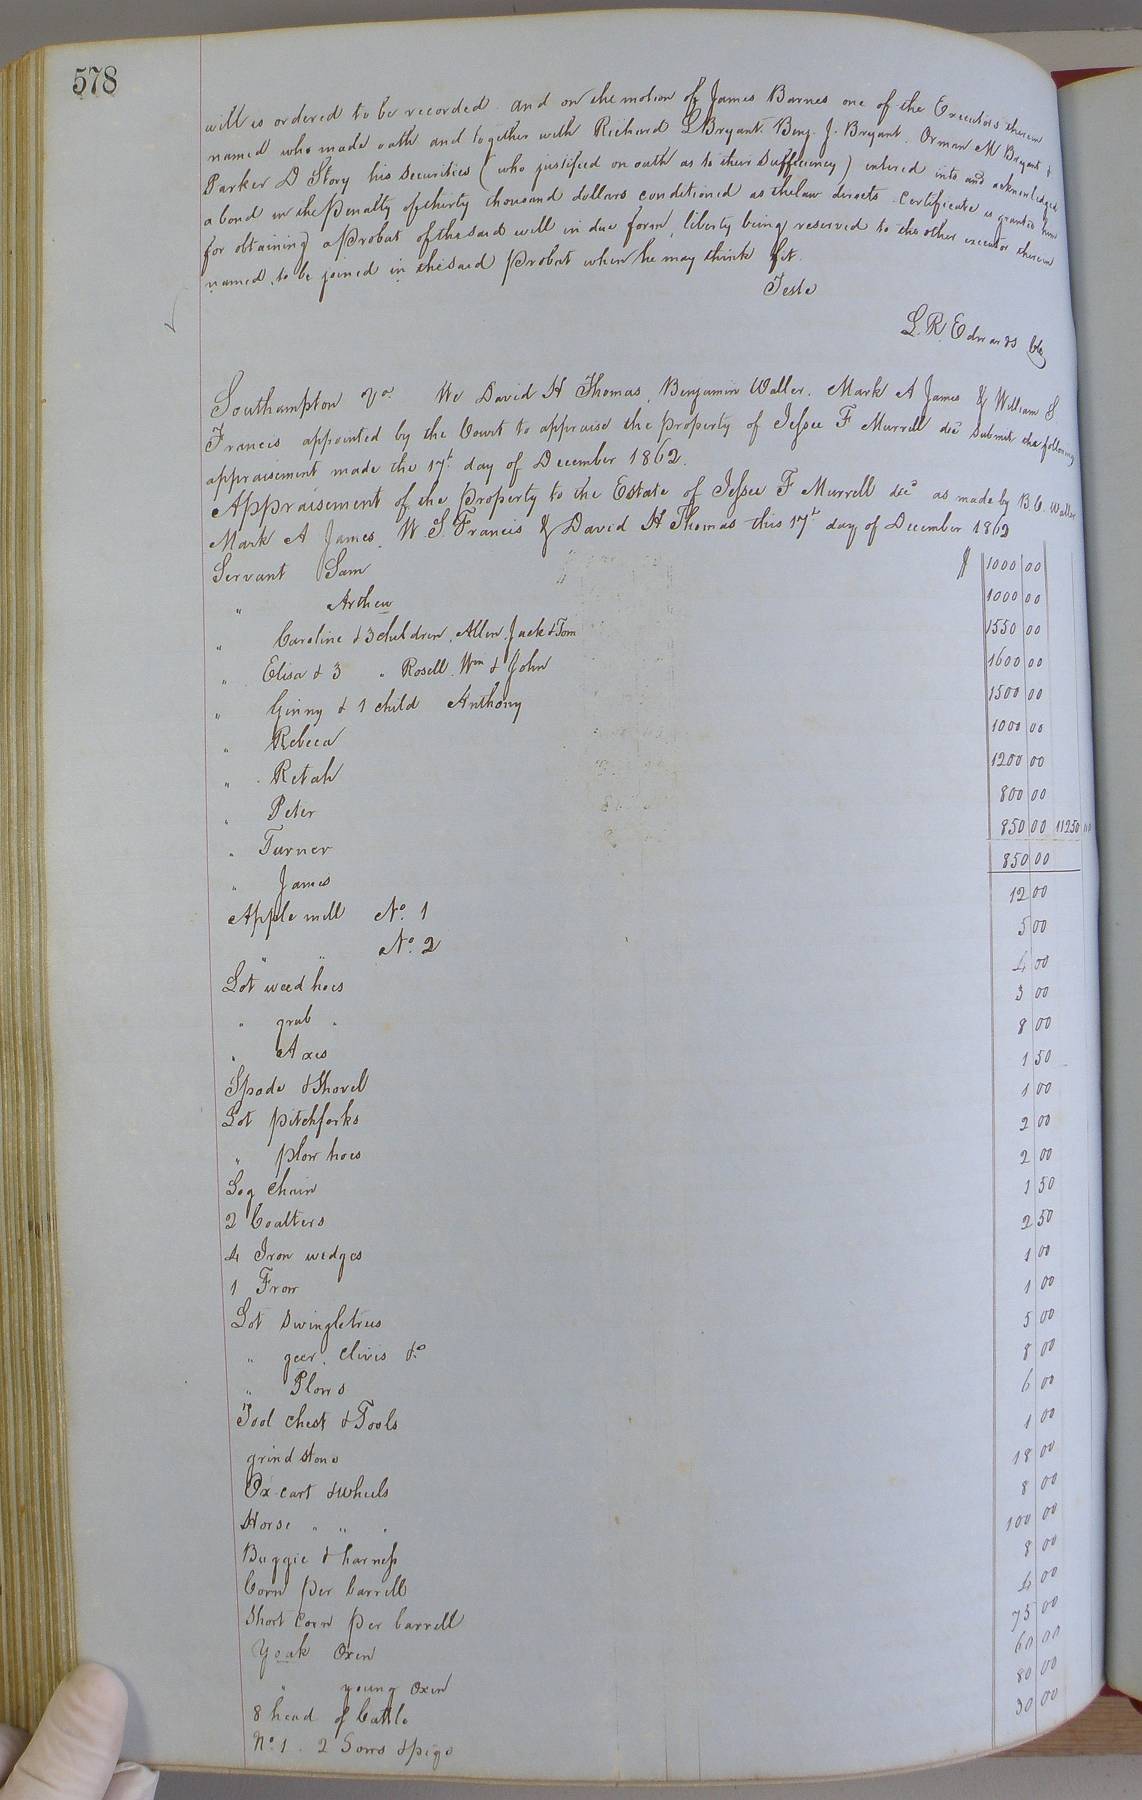 578
will is ordered to be recorded. And on the motion of James Barnes one of the Executors therein
named who made oath and together with Richard L Bryant. Benj. J. Bryant. Orman M Bryant &
Parker D Story his securities (who justified on oath as to their sufficiency) entered into and acknowledged
a bond in the Penalty of thirty thousand dollars conditioned as the law directs certificate is granted him
for obtaining a Probat of the said will in due form, liberty being reserved to the other executor therein
named, to be joined in the said Probat when he may think fit.
Teste
L. R. Edwards Clk
Southampton Va We David H Thomas, Benjamin Waller, Mark A James & William S
Francis appointed by the Court to appraise the property of Jessee F Murrell decd submit the following
appraisement made the 17th day of December 1862.
Appraisement of the property to the Estate of Jessee F Murrell decd as made by B. C. Waller
Mark A James, W. S. Francis & David H Thomas this 17th day of December 1862
Servant Sam $ 1000 00
" Arthew 1000 00
" Caroline & 3 children, Allen, Jack & Tom 1550 00
" Elisa & 3 " Rosell, Wm & John 1600 00
" Ginny & 1 child Anthony 1500 00
" Rebeca 1000 00
" Retah 1200 00
" Peter 800 00
" Turner 850 00 11250 00
" James 850 00
Apple mill No. 1 12 00
" " No. 2 5 00
Lot weed hoes 4 00
" grub " 3 00
" Axes 8 00
Spade & Shovel 1 50
Lot pitchforks 1 00
" plow hoes 2 00
Log Chain 2 00
2 Coalters 1 50
4 Iron wedges 2 50
1 Frow 1 00
Lot Swingletrees 1 00
" geer, clivis &c 5 00
" Plows 8 00
Tool chest & Tools 6 00
grind stone 1 00
Ox-cart & wheels 18 00
Horse " " " 8 00
Buggie & harness 100 00
Corn per barrell 8 00
Short corn per barrell 4 00
Yoak Oxen 75 00
" young oxen 60 00
8 head of Cattle 80 00
No. 1. 2 Sows & pigs 30 00